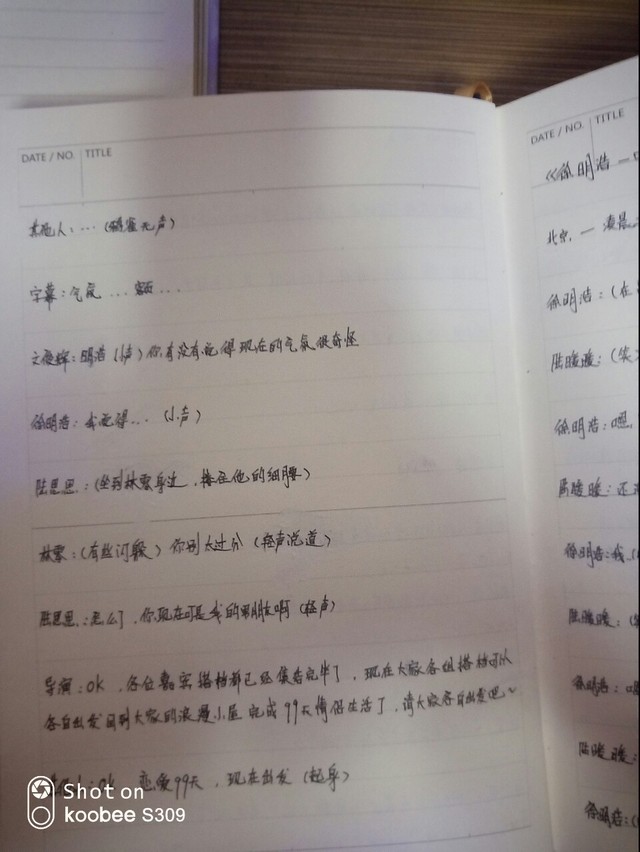 DATE / NO. TITLE
其他人：…（鸦雀无声）
字幕：气氛 … 额 …
文俊辉：明浩（小声）你有没有觉得现在的气氛很奇怪
徐明浩：我觉得…（小声）
陆思思：（坐到林墨身边，搂住他的细腰）
（有些闪躲）你别太过分（轻声说道）
陆思思：怎么了，你现在可是我的男朋友啊（轻声）
导演：ok，各位嘉宾搭档都已经集合完毕了，现在大家各组搭档可以
各自出发回到大家的浪漫小屋完成99天情侣生活了，请大家各自出发吧~
：ok，恋爱99天，现在出发（起身）
DATE / NO. TITLE
《徐明浩一
北京，一 凌晨
徐明浩：（在
陆暖暖：（笑
徐明浩：嗯，
陆暖暖：还
徐明浩：我
陆暖暖：
徐明浩：嗯
陆暖暖：
徐明浩：（
Shot on
koobee S309